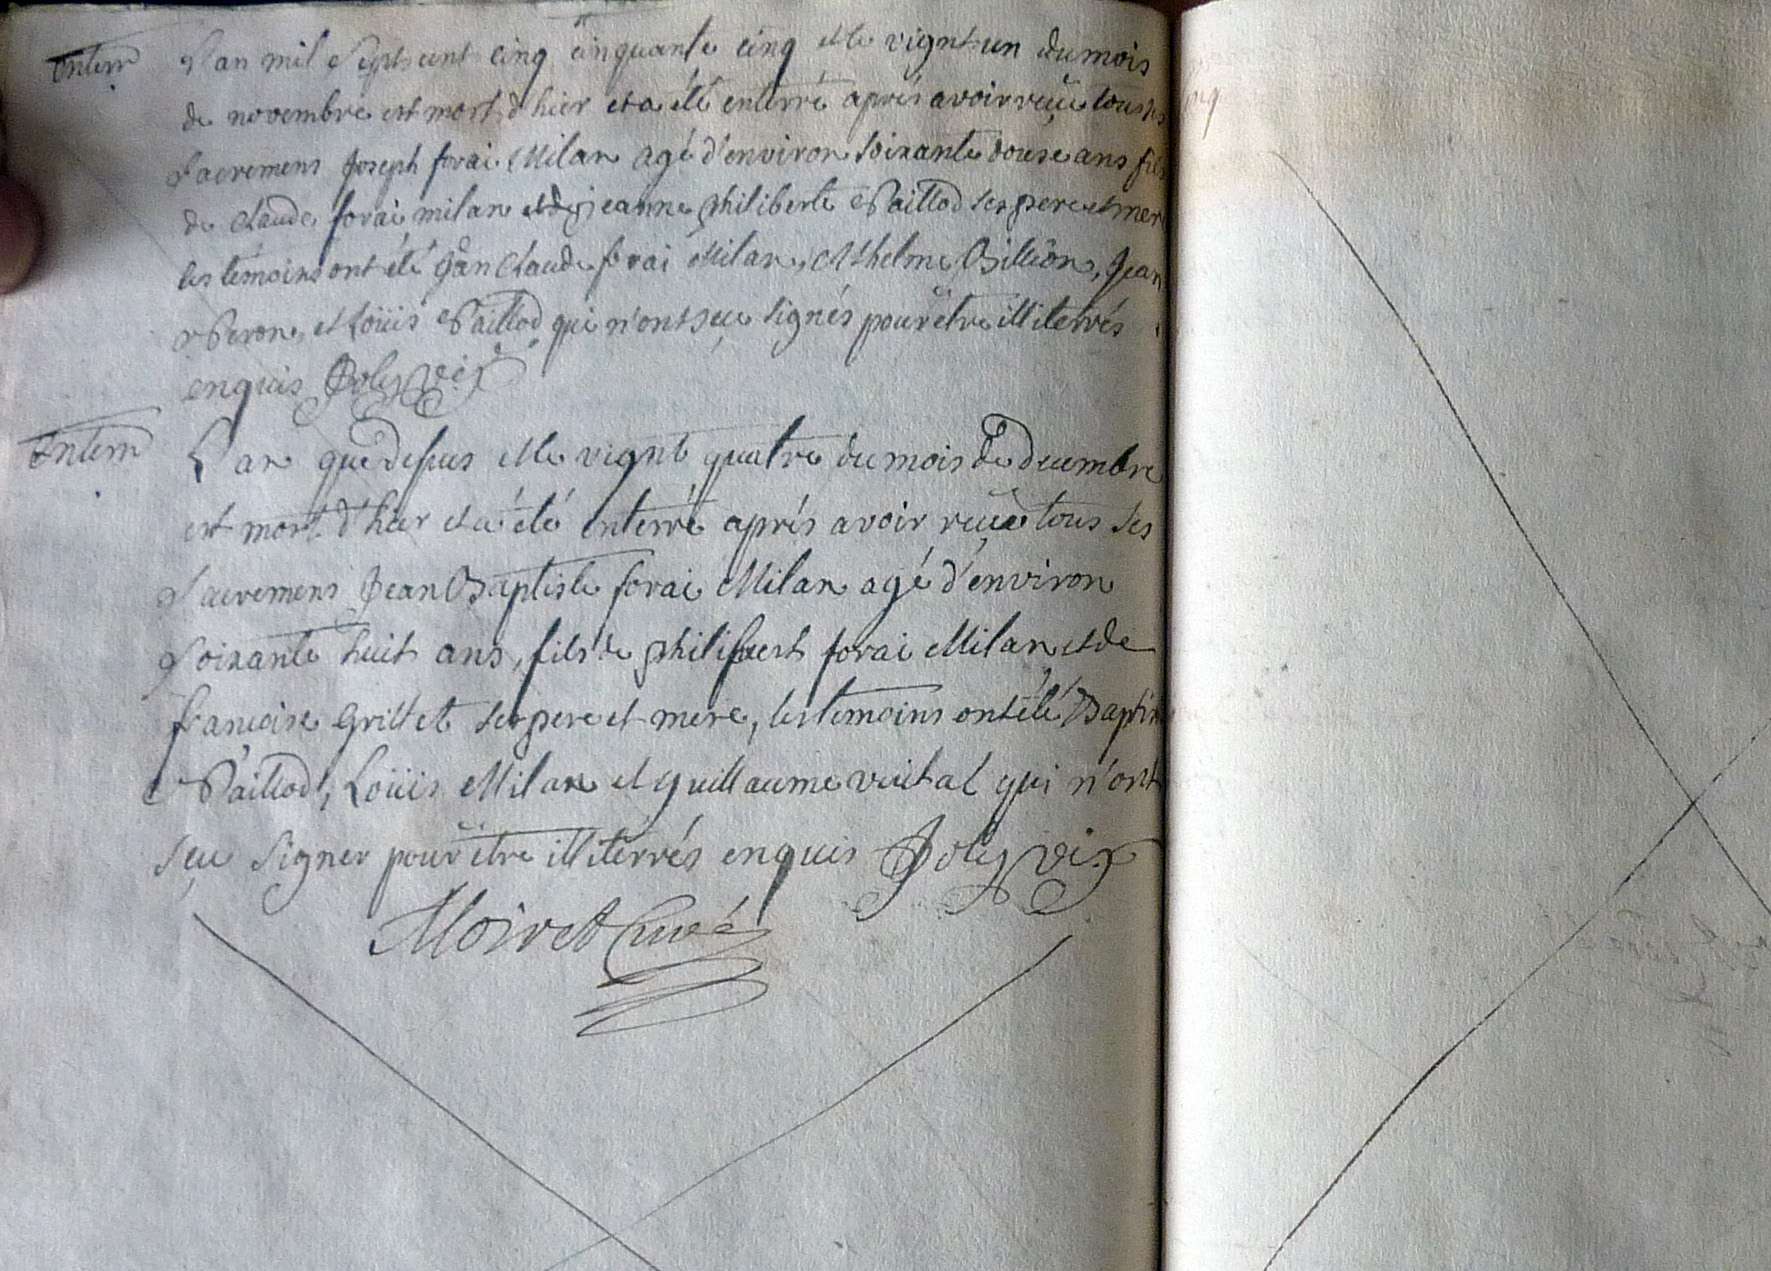 Enterr L'an mil sept cent cinq cinquante cinq et le vignt un du mois
de novembre est mort d'hier et a été enterré aprés avoir reçüe tous ses
sacremens Joseph forai Milan agé d'environ soixante douse ans fils
de Claude forai milan et de jeanne philiberte Paillod ses pere et mere
les témoins ont été Jean Claude forai Milan, Anthelme Billion, Jean
Peron, et Loüis Paillod qui n'ont sçu signés pour être illiterrés
enquis Joly vic
Enterr L'an que depus et le vignt quatre du mois de decembre
est mort d'hier et a été enterré aprés avoir reçüe tous ses
sacremens Jean Baptiste forai Milan agé d'environ
soixante huit ans, fils de philibert forai Milan et de
françoise Grillet ses pere et mere, les temoins ont été Baptiste
Paillod, Loüis Milan et guillaume vuital qui n'ont
sçu signer pour être illiterrés enquis Joly vic
Moiret Curé